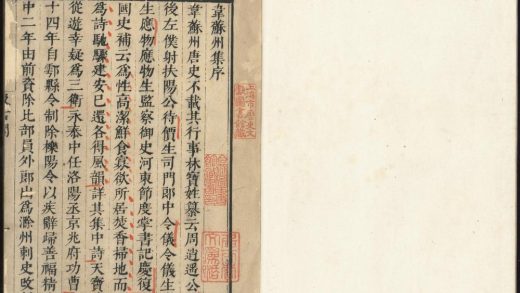 韋蘇州集序
韋蘇州唐史不載其行事林寶姓纂云周逍遥公
後左僕射扶陽公待價生司門郎中令儀令儀生
生應物應物生監察御史河東節度掌書記慶復
國史補云爲性高潔鮮食寡欲所居焚香掃地而
爲詩馳驟建安已還各得風韻詳其集中詩天寶
從遊幸疑爲三衛永泰中任洛陽丞京兆府功曹
十四年自鄠縣令制除櫟陽令以疾辭歸善福精
中二年由前資除比部員外郎出爲滁州刺史改
上海市歷史文
獻圖書館藏